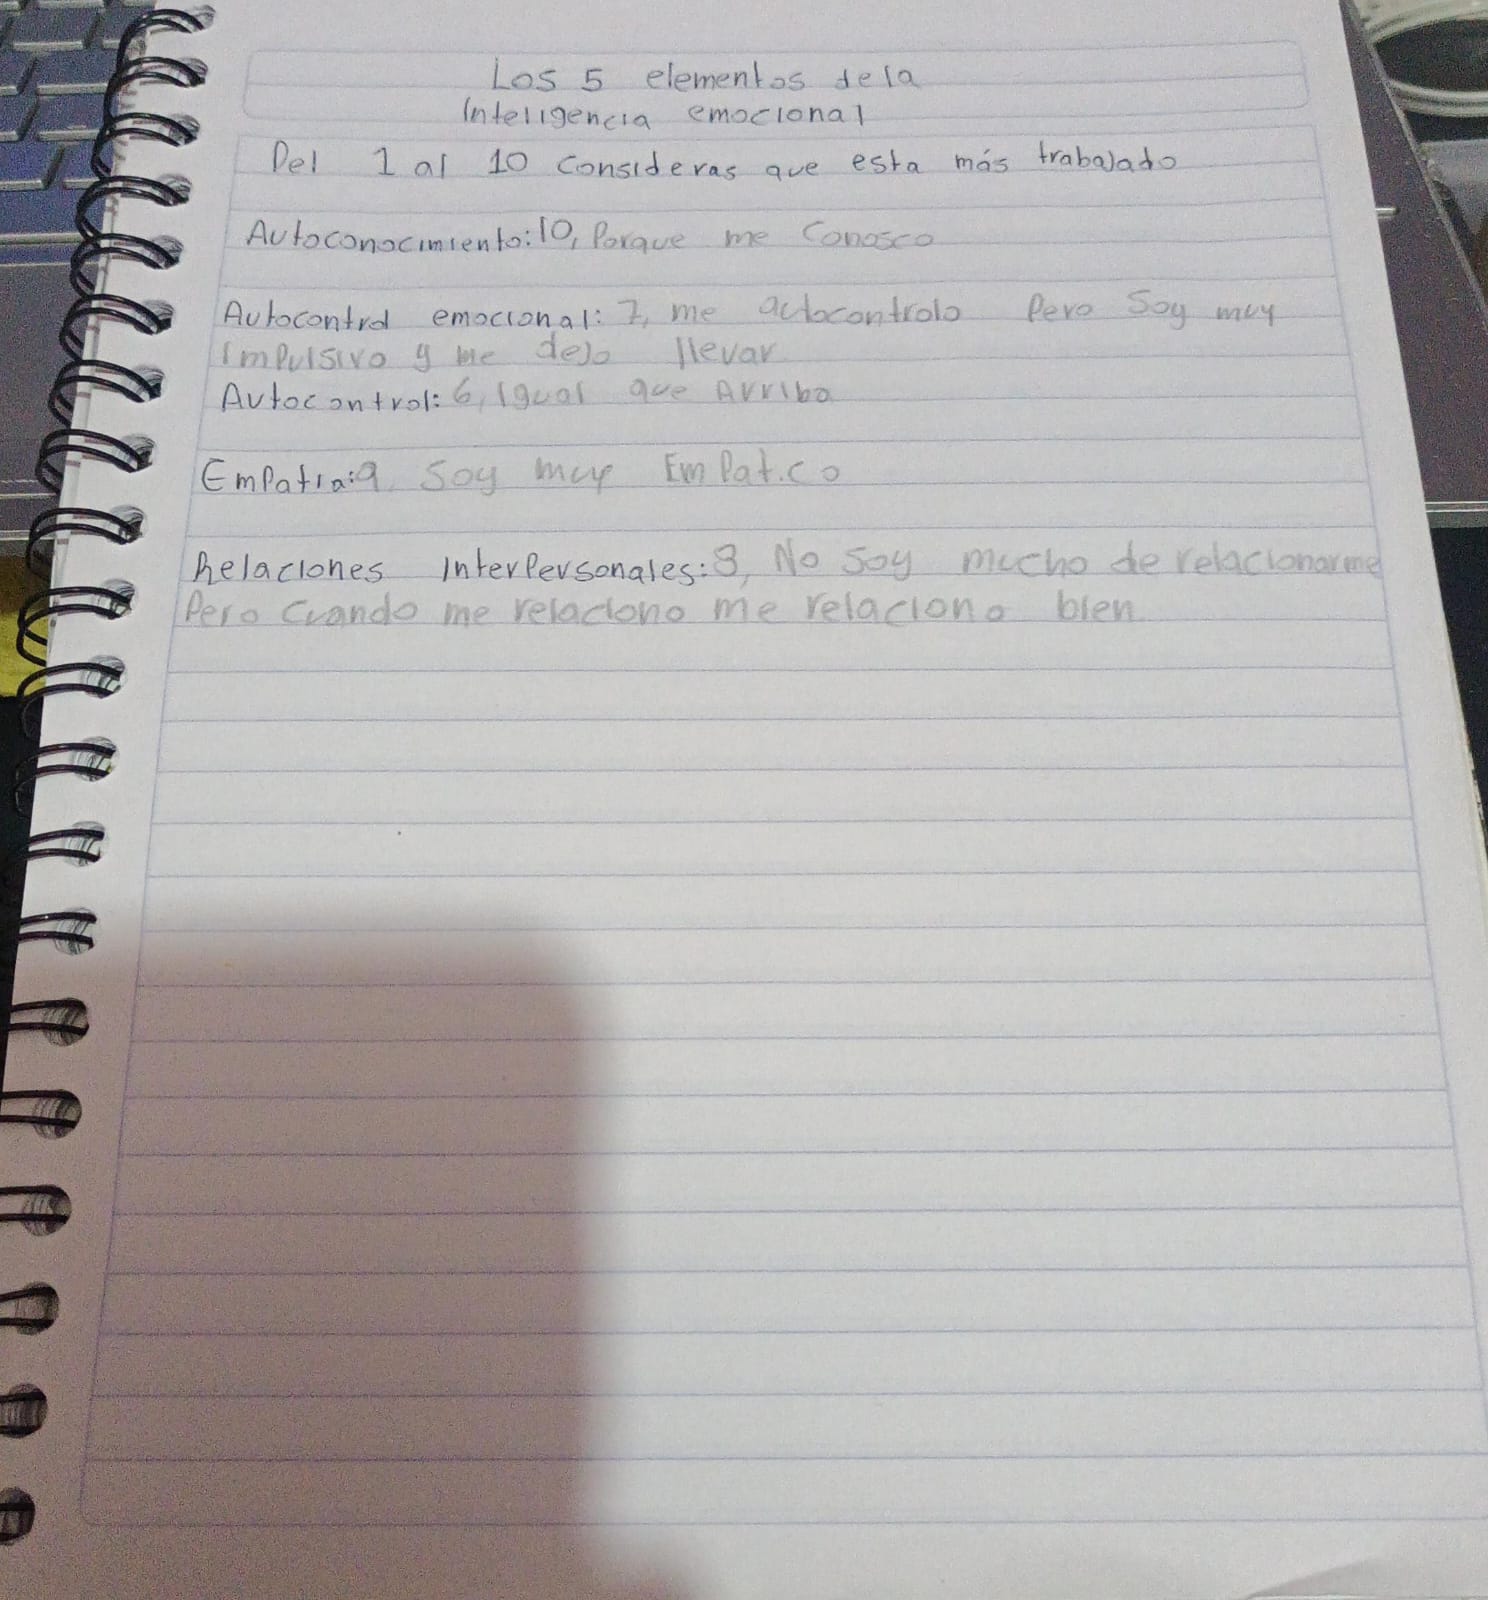 Los 5 elementos de la
Inteligencia emocional
Del 1 al 10 consideras que esta más trabajado
Autoconocimiento: 10, Porque me Conosco
Autocontrol emocional: 7, me autocontrolo Pero Soy muy
impulsivo y me dejo llevar
Autocontrol: 6, igual que Arriba
Empatia: 9, Soy muy Empatico
Relaciones InterPersonales: 8, No Soy mucho de relacionarme
Pero Cuando me relaciono me relaciono bien.